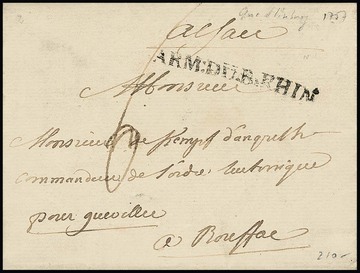 1757
alsace
ARM:DU.B.RHIN
Monsieur
Monsieur de Kempf d'angreth
commandeur de l'ordre teutonique
pour guebviller
a Rouffac
6